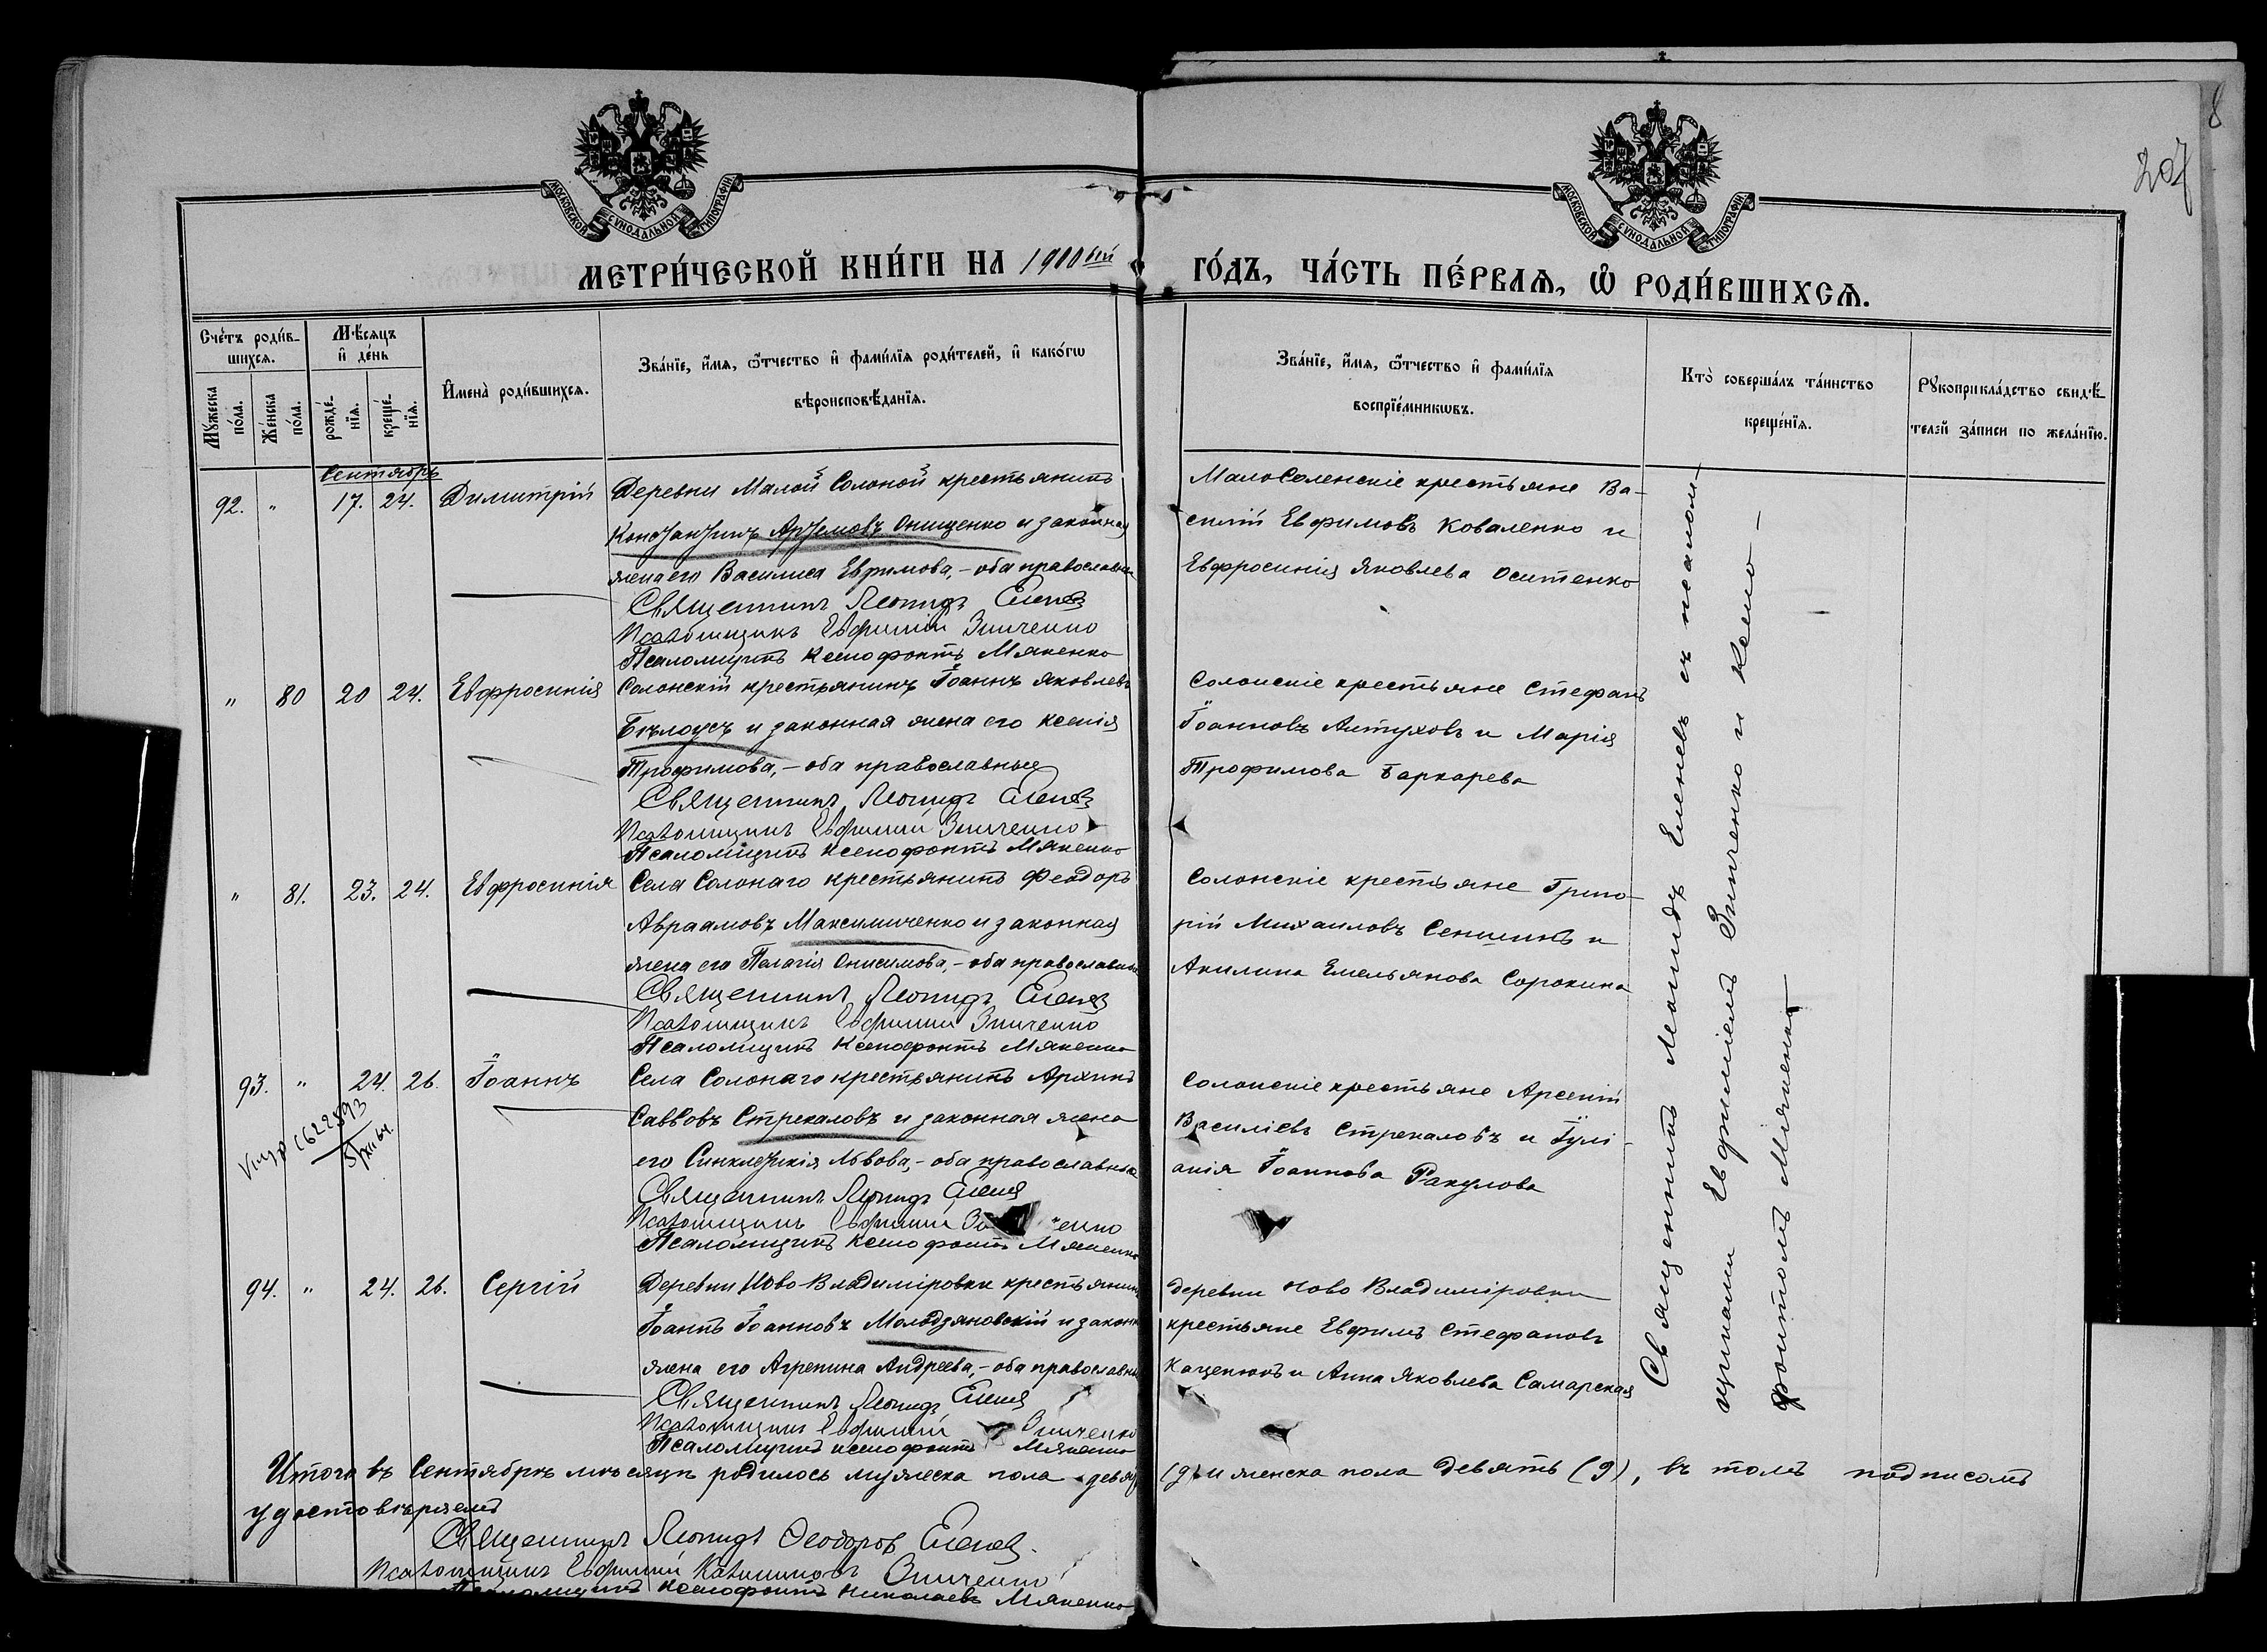 8
207
МОСКОВСКОЙ СѴНОДАЛЬНОЙ ТИПОГРАФІИ
МОСКОВСКОЙ СѴНОДАЛЬНОЙ ТИПОГРАФІИ
МЕТРИ́ЧЕСКОЙ КНИ́ГИ НА 1900ый ГО́ДЪ, ЧА́СТЬ ПЕ́РВАѦ, Ѡ҆ РОДИ́ВШИХСѦ.
Сче́тъ роди́в-
шихсѧ.
Мꙋ́жеска по́ла.
Же́нска по́ла.
Мѣ́сѧцъ
и҆ де́нь
рожде́-
нїѧ.
креще́-
нїѧ.
И҆мена̀ роди́вшихсѧ.
Зва́нїе, и҆́мѧ, ѻ҆́тчество и҆ фами́лїѧ роди́телей, и҆ како́гѡ
вѣроисповѣ́данїѧ.
Зва́нїе, и҆́мѧ, ѻ҆́тчество и҆ фами́лїѧ
воспрїе́мникѡвъ.
Кто̀ соверша́лъ та́инство
креще́нїѧ.
Рꙋкоприкла́дство свидѣ́-
телей за́писи по жела́нїю.
Сентябрь
92. " 17. 24. Димитрій
Деревни Малой Солоной крестьянинъ
Константинъ Артемовъ Онищенко и законная
жена его Василиса Евфимова, – оба православные
Священникъ Леонидъ Еленевъ
Псаломщикъ Евфимій Зинченко
Псаломщикъ Ксенофонтъ Мякенко
МалоСоленскіе крестьяне Ва-
силій Евфимовъ Коваленко и
Евфросинія Яковлева Оситенко
" 80 20 24. Евфросинія
Солонскій крестьянинъ Іоаннъ Яковлевъ
Бѣлоусъ и законная жена его Ксенія
Трофимова, – оба православные
Священникъ Леонидъ Еленевъ
Псаломщикъ Евфимій Зинченко
Псаломщикъ Ксенофонтъ Мякенко
Солонскіе крестьяне Стефанъ
Іоанновъ Алтуховъ и Марія
Трофимова Баркарева
" 81. 23. 24. Евфросинія
Села Солонаго крестьянинъ Феодоръ
Авраамовъ Максимиченко и законная
жена его Пелагія Онисимова, – оба православные
Священникъ Леонидъ Еленевъ
Псаломщикъ Евфимій Зинченко
Псаломщикъ Ксенофонтъ Мякенко
Солонскіе крестьяне Григо-
рій Михаиловъ Сеншинъ и
Акилина Емельянова Сорокина
93. " 24. 26. Іоаннъ
Села Солонаго крестьянинъ Архипъ
Саввовъ Стрекаловъ и законная жена
его Синклитикія Львова, – оба православные
Священникъ Леонидъ Еленевъ
Псаломщикъ Евфимій Зинченко
Псаломщикъ Ксенофонтъ Мякенко
Солонскіе крестьяне Арсеній
Василіевъ Стрекаловъ и Іулі-
анія Іоаннова Ракулова
94. " 24. 26. Сергій
Деревни Ново-Владиміровки крестьянинъ
Іоаннъ Іоанновъ Молодзяновскій и законная
жена его Агрепина Андреева, – оба православные
Священникъ Леонидъ Еленевъ
Псаломщикъ Евфимій Зинченко
Псаломщикъ Ксенофонтъ Мякенко
деревни Ново Владиміровки
крестьяне Евфимъ Стефановъ
Каценюкъ и Анна Яковлева Самарская
Священникъ Леонидъ Еленевъ съ псалом-
щиками Евфиміемъ Зинченко и Ксено-
фонтомъ Мякенко
Итого въ Сентябрѣ мѣсяцѣ родилось мужеска пола девять (9) и женска пола девять (9), въ томъ подписомъ
удостовѣряемъ
Священникъ Леонидъ Феодоровъ Еленевъ.
Псаломщикъ Евфимій Зинченко
Псаломщикъ Ксенофонтъ Николаевъ Мякенко